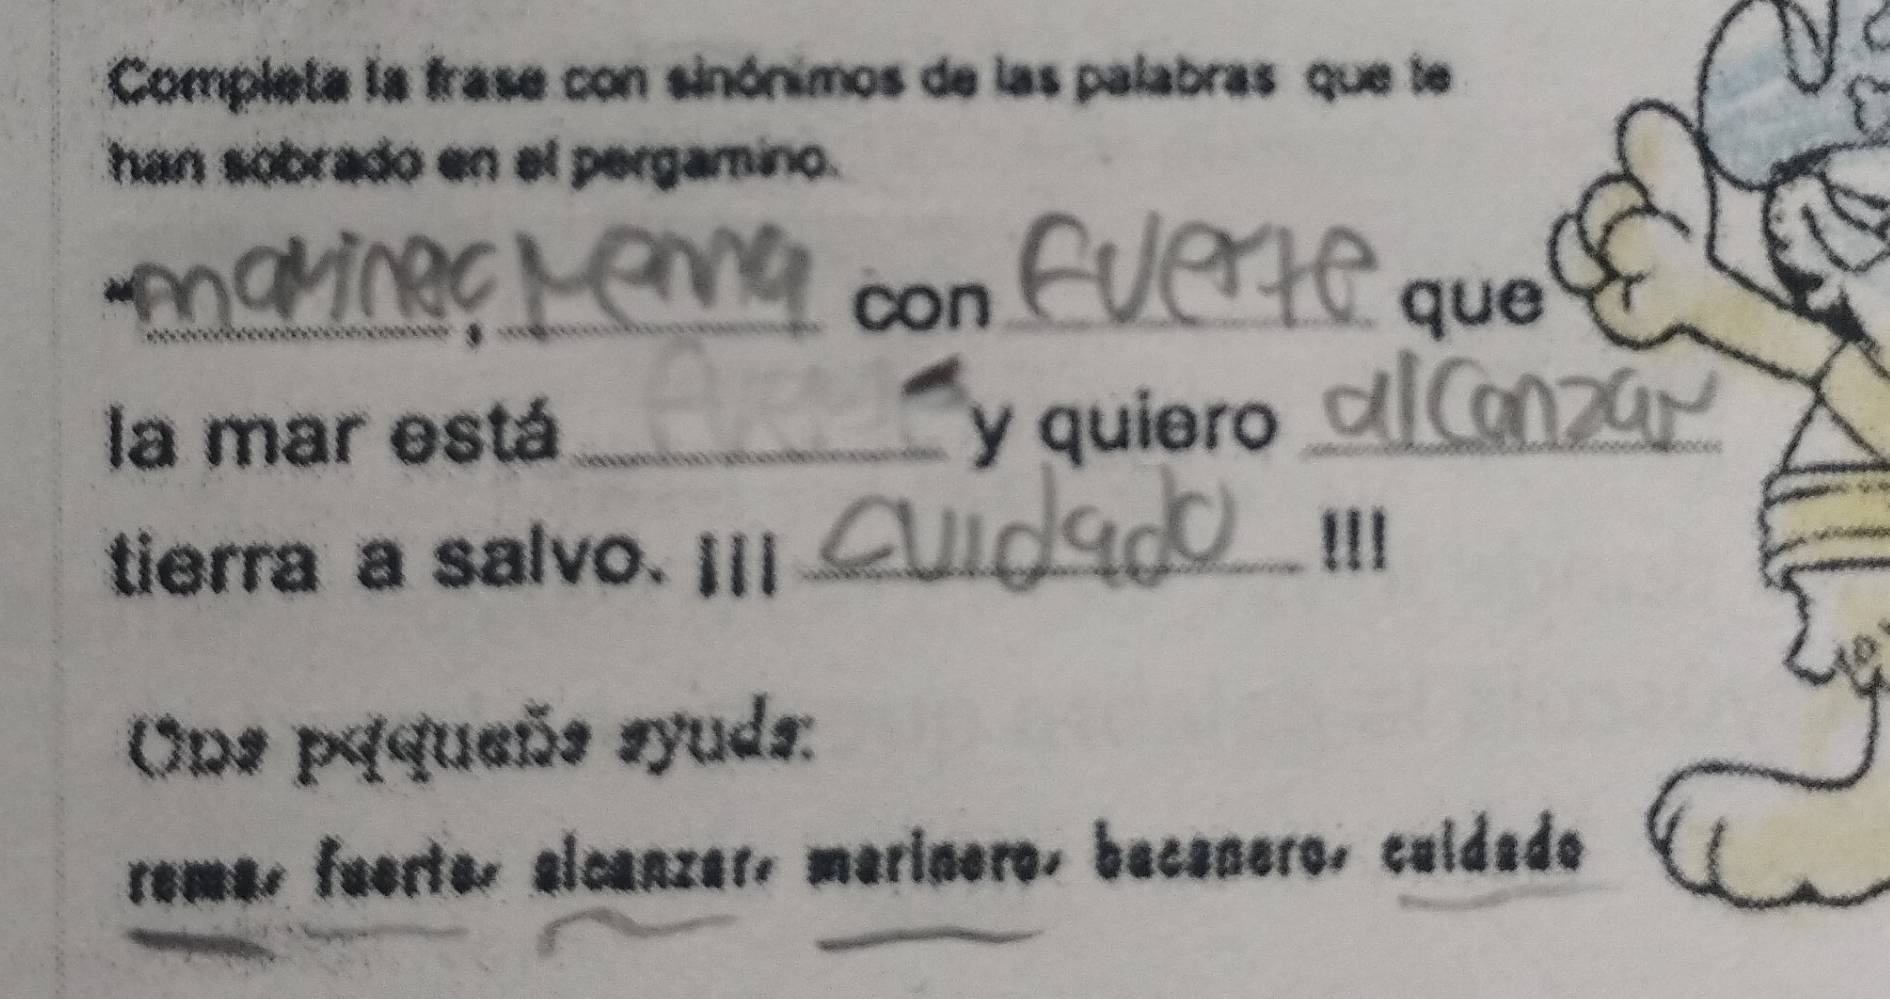 Completa la frase con sinónimos de las palabras que te
han sobrado en el pergamino.
"marinec, rema con Fuerte que
la mar está y quiero alcanzar
tierra a salvo. ¡¡¡ cuidado !!!
Una pequeña ayuda:
rema, fuerte, alcanzar, marinero, bacanero, cuidado